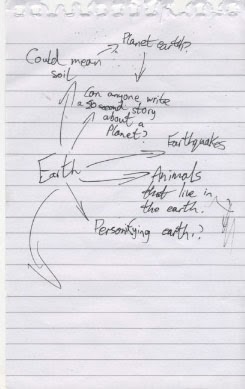 Planet earth?
Could mean
soil
Can anyone write
a 30 second story
about a
Planet?
Earthquakes
Earth
Animals
that live in
the earth.
Personifying earth?